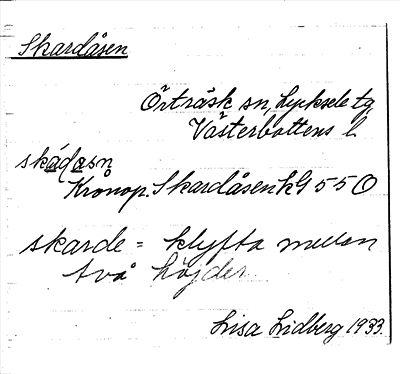 Skardåsen
Örträsk sn, Lycksele tg
Västerbottens l.
skádasn
Kronop. Skardåsen kG 550
skarde = klyfta mellan
två höjder
Lisa Lidberg 1933.